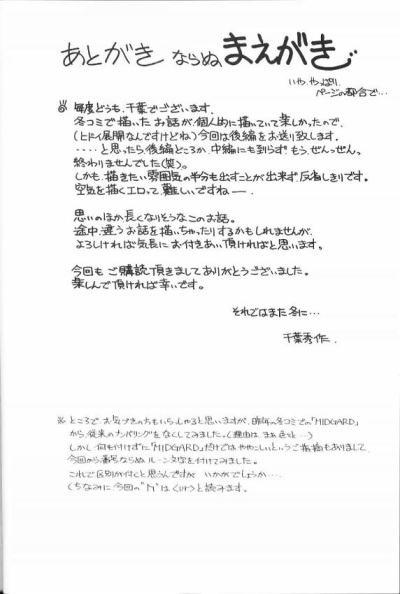 あとがき ならぬ まえがき
いや、やっぱり、
ページの都合で…
毎度どうも、千葉でございます。
冬コミで描いたお話が、個人的に描いていて楽しかったので、
(ヒドイ展開なんですけどね)今回は後編をお送り致します。
‥‥と思ったら、後編どころか、中編にも到らず もう、ぜんっぜん、
終わりませんでした(笑)。
しかも、描きたい雰囲気の半分も出すことが出来ず、反省しきりです。
空気を描くエロって、難しいですねー。
思いのほか長くなりそうなこのお話。
途中、違うお話を描いちゃったりするかもしれませんが、
よろしければ気長にお付きあい頂ければと思います。
今回もご購読頂きましてありがとうございました。
楽しんで頂ければ幸いです。
それではまた冬に…
千葉秀作.
※ところで お気づきの方もいらっしゃると思いますが、昨年の冬コミでの「MIDGARD」
から、従来のナンバリングをなくしてみました。(理由は、まぁ色々と…)
しかし 何も付けずに「MIDGARD」だけでは ややこしいというご指摘もありまして、
今回から番号ならぬ ルーン文字を付けてみました。
これで区別が付くと思うんですが いかがでしょうか…。
(ちなみに、今回の は と読みます。